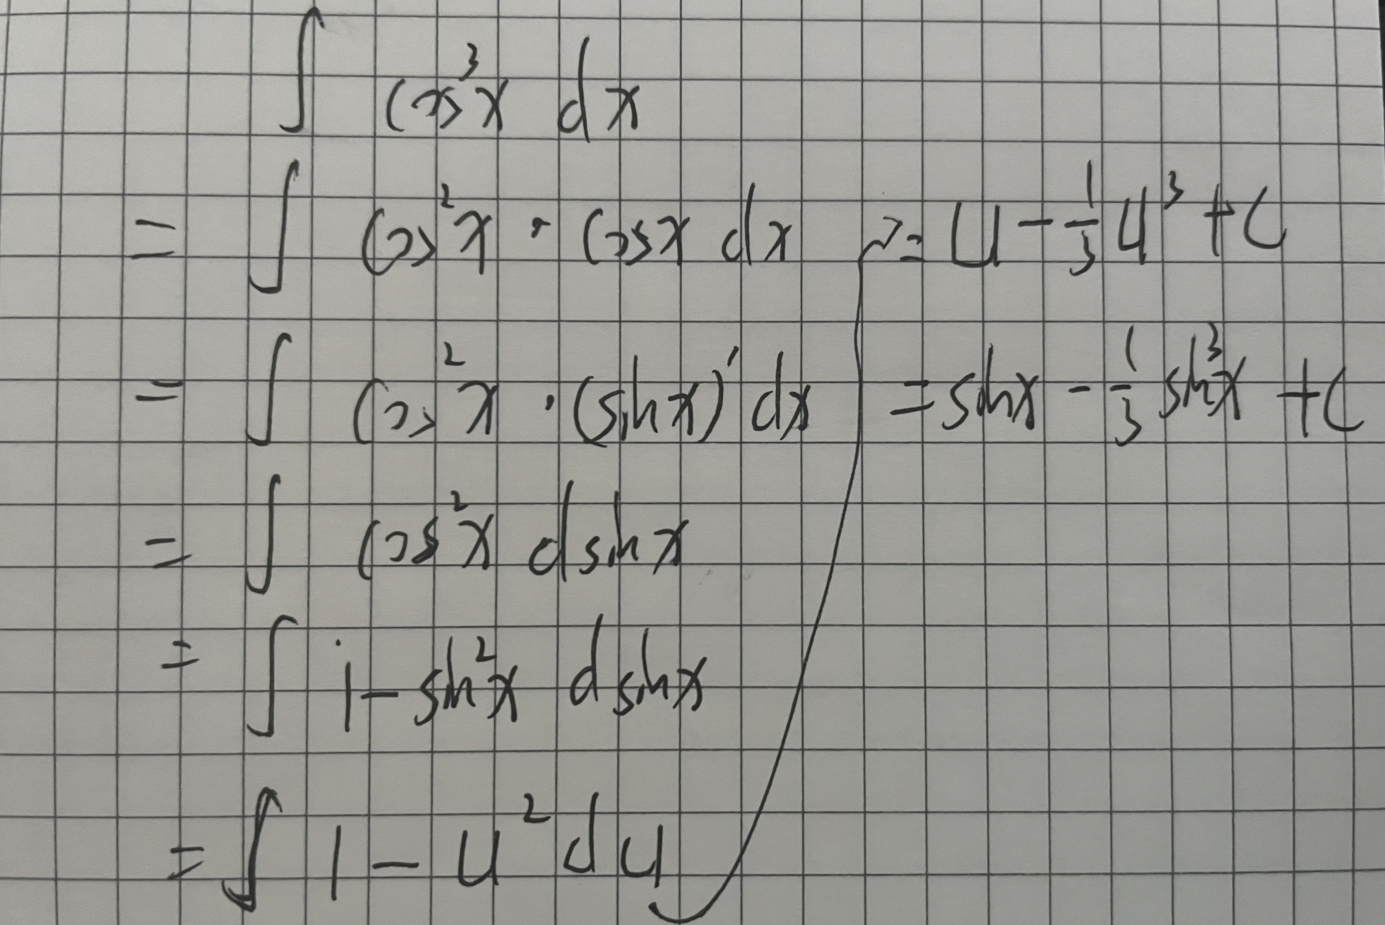 ∫ cos³x dx
= ∫ cos²x · cosx dx
= ∫ cos²x · (sinx)' dx
= ∫ cos²x dsinx
= ∫ 1 - sin²x dsinx
= ∫ 1 - u² du
= u - 1/3 u³ + C
= sinx - 1/3 sin³x + C